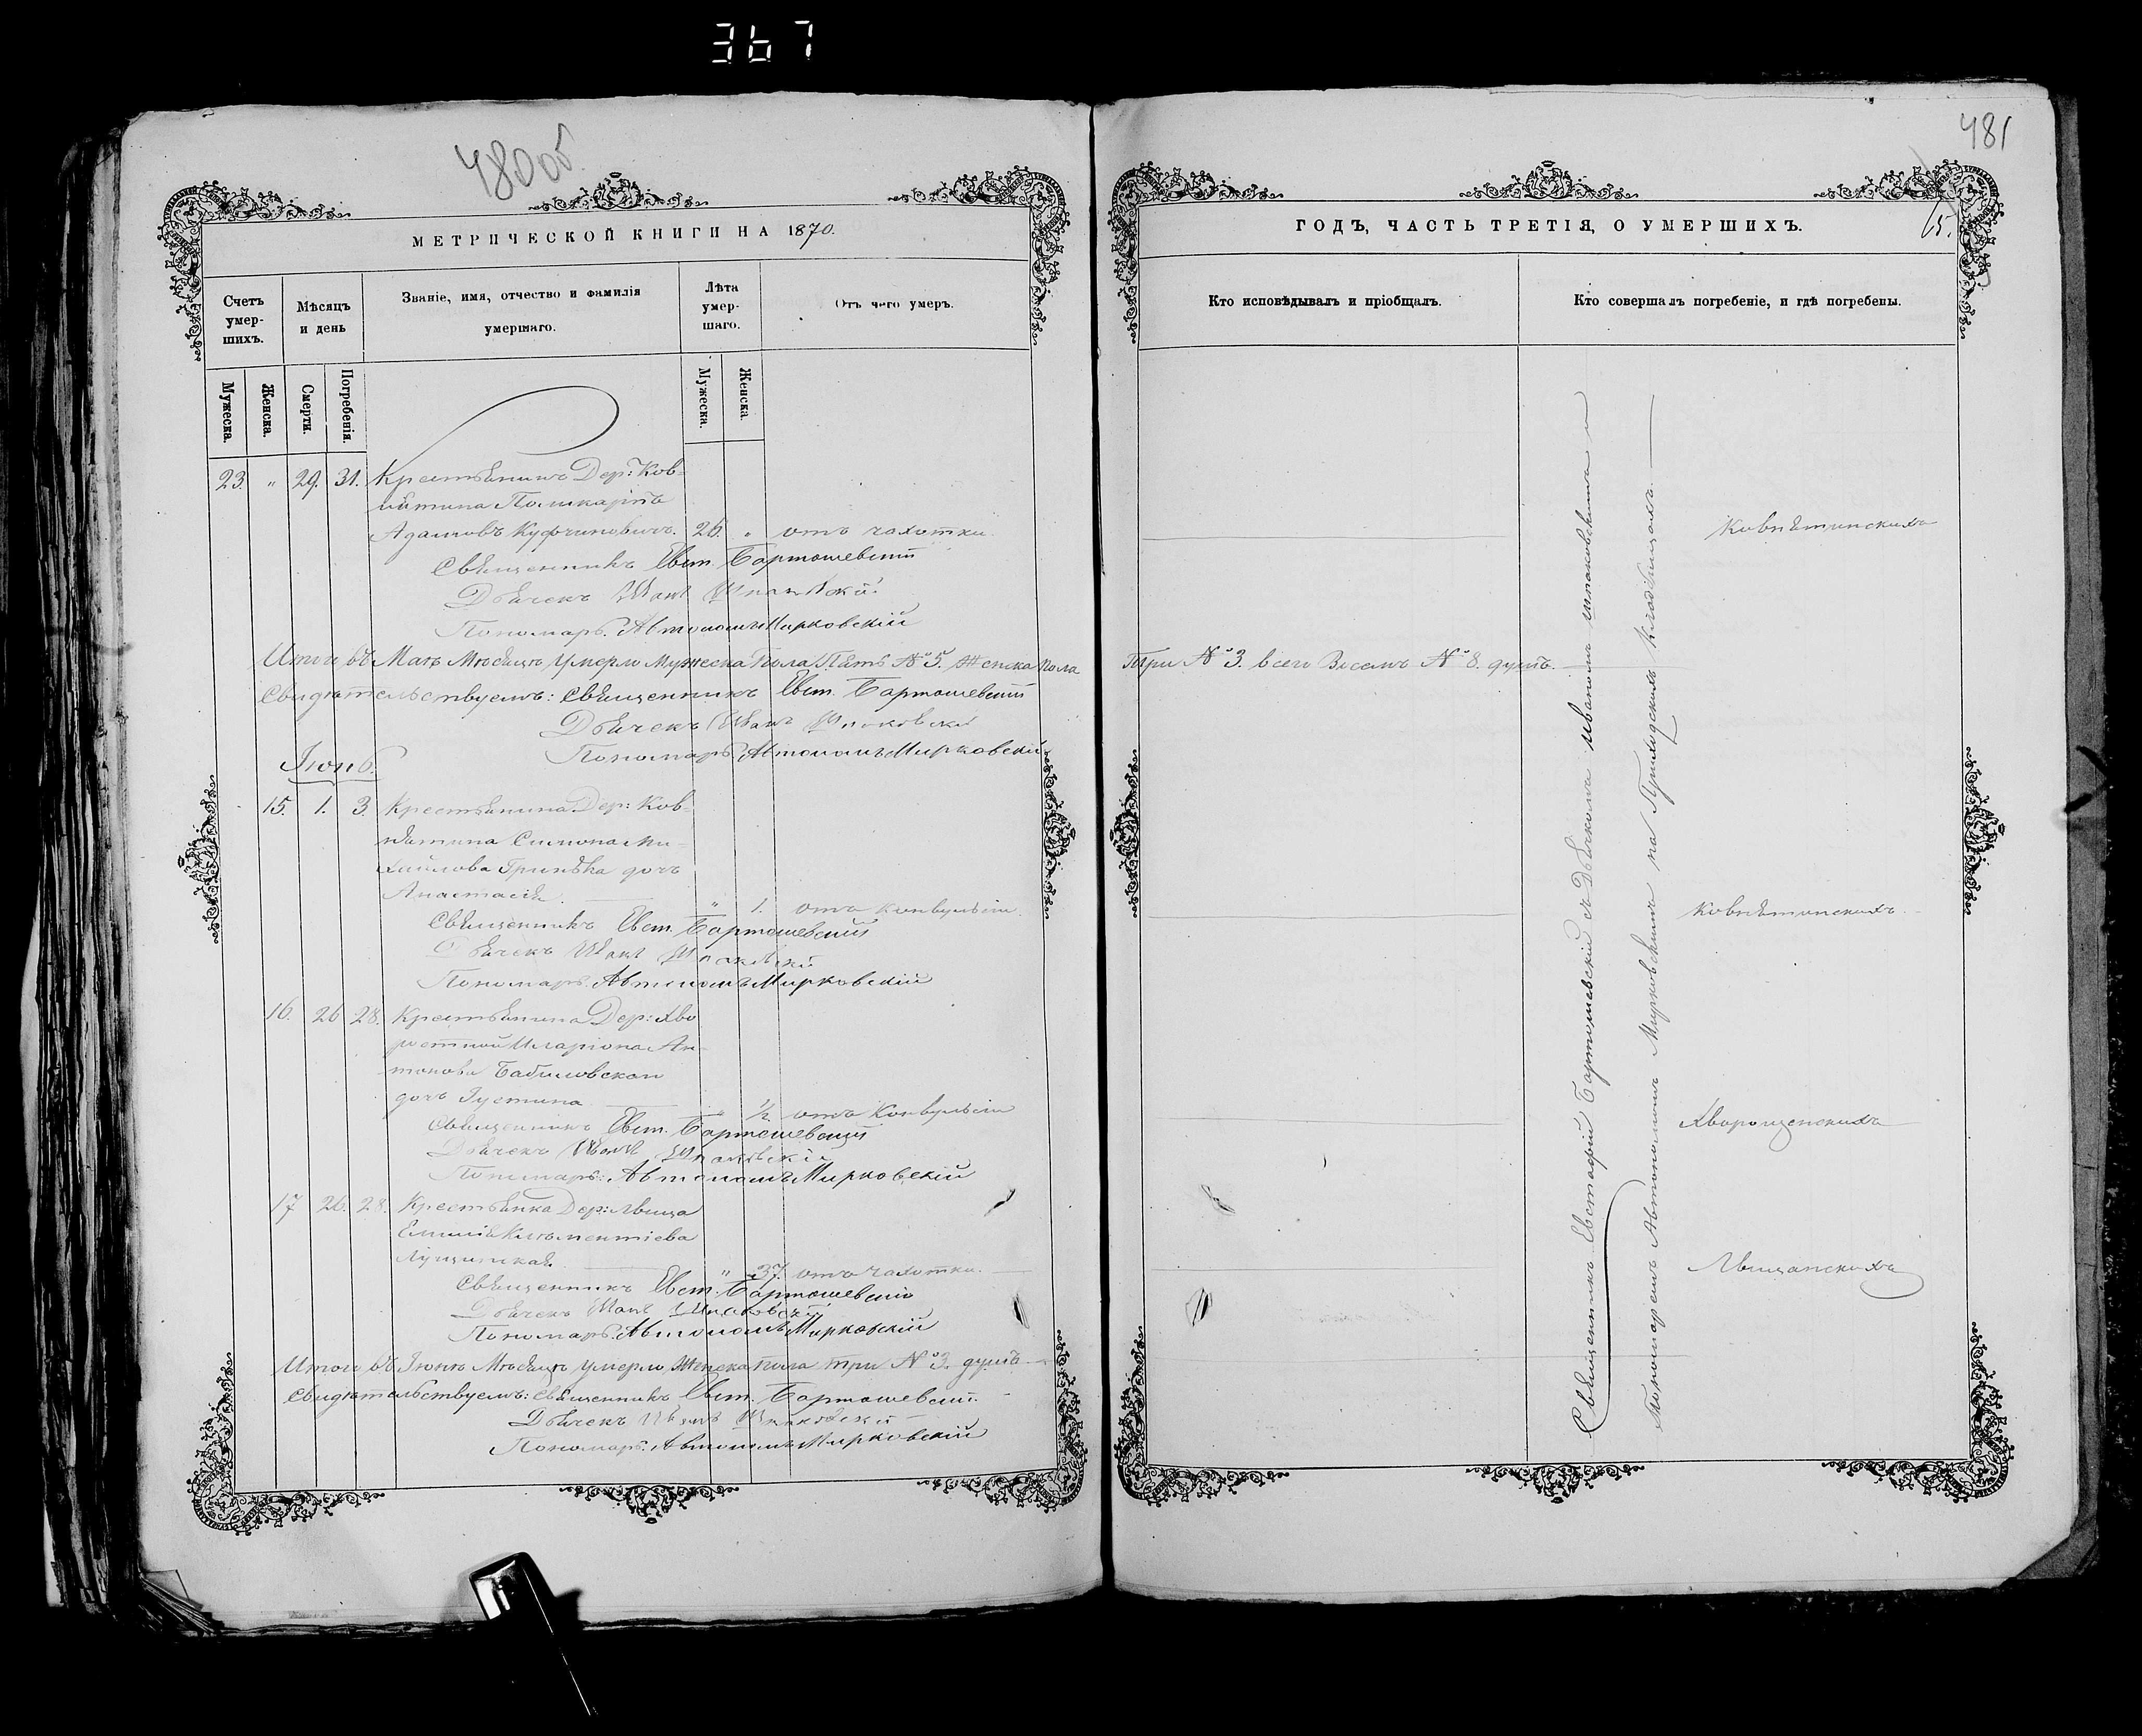 367
480об
МЕТРИЧЕСКОЙ КНИГИ НА 1870.
Счетъ умер-шихъ.
Мѣсяцъ и день
Званіе, имя, отчество и фамилія умершаго.
Лѣта умер-шаго.
Отъ чего умеръ.
Мужеска.
Женска.
Смерти.
Погребенія.
Мужеска.
Женска.
23. " 29. 31. Крестьянинъ Дер: Ков-
нятина Поликарпъ
Адамовъ 26. " отъ чахотки.
Священникъ Евст. Бартошевскій
Дьячекъ Иванъ Шпаковскій
Пономарь Автономъ Мирковскій
Итого въ Маѣ Мѣсяцѣ Умерло Мужеска Пола Пять № 5. Женска пола
Свидѣтельствуемъ: Священникъ Евст. Бартошевскій
Дьячекъ Иванъ Шпаковскій
Пономарь Автономъ Мирковскій
Іюнь.
15. 1. 3. Крестьянина Дер: Ков-
нятина Симона Ми-
хайлова дочь
Анастасія " 1. отъ конвульсіи.
Священникъ Евст. Бартошевскій
Дьячекъ Иванъ Шпаковскій
Пономарь Автономъ Мирковскій
16. 26 28. Крестьянина Дер: Хво
ростной Иларіона Ан-
тонова Бабиловскаго
дочь Іустина " 1/2 отъ Конвульсіи
Священникъ Евст. Бартошевскій
Дьячекъ Иванъ Шпаковскій
Пономарь: Автономъ Мирковскій
17 26. 28. Крестьянка Дер: Лвища
Емилія Климентіева
Лущинская " 37. отъ чахотки.
Священникъ Евст. Бартошевскій
Дьячекъ Иванъ Шпаковскій
Пономарь Автономъ Мирковскій
Итого въ Іюнѣ Мѣсяцѣ умерло Женска пола три № 3. душъ
Свидѣтельствуемъ: Священникъ Евст. Бартошевскій
Дьячекъ Иванъ Шпаковскій
Пономарь Автономъ Мирковскій
481
65.
ГОДЪ, ЧАСТЬ ТРЕТІЯ, О УМЕРШИХЪ.
Кто исповѣдывалъ и пріобщалъ.
Кто совершалъ погребеніе, и гдѣ погребены.
Ковнятинскихъ
Три № 3. всего Восемь № 8. душъ.
Ковнятинскихъ.
Хворощенскихъ
Лвищанскихъ
Священникъ Евстафій Бартошевскій съ Дьячкомъ Иваномъ Шпаковскимъ и
Пономаремъ Автономомъ Мирковскимъ на Приходскихъ Кладбищахъ